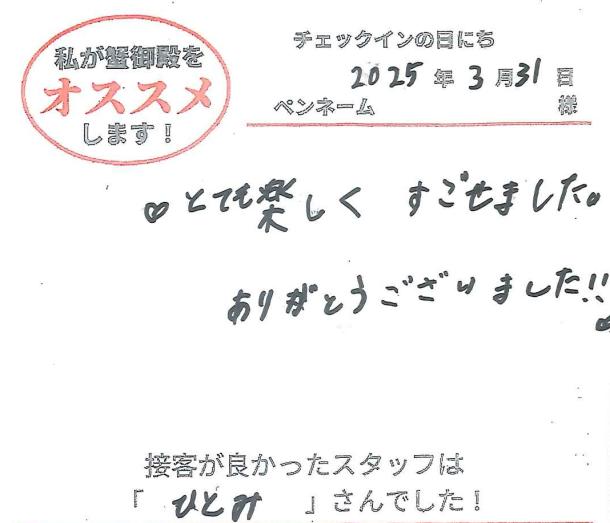 私が蟹御殿を
オススメ
します！
チェックインの日にち
2025年3月31日
ペンネーム 様
♡とても楽しく すごせました。
ありがとうございました!!
接客が良かったスタッフは
「 ひとみ 」さんでした！